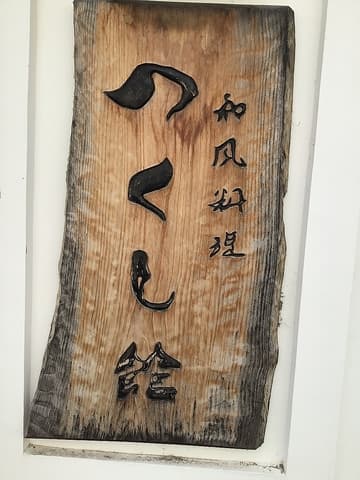 和風料理
つくし館